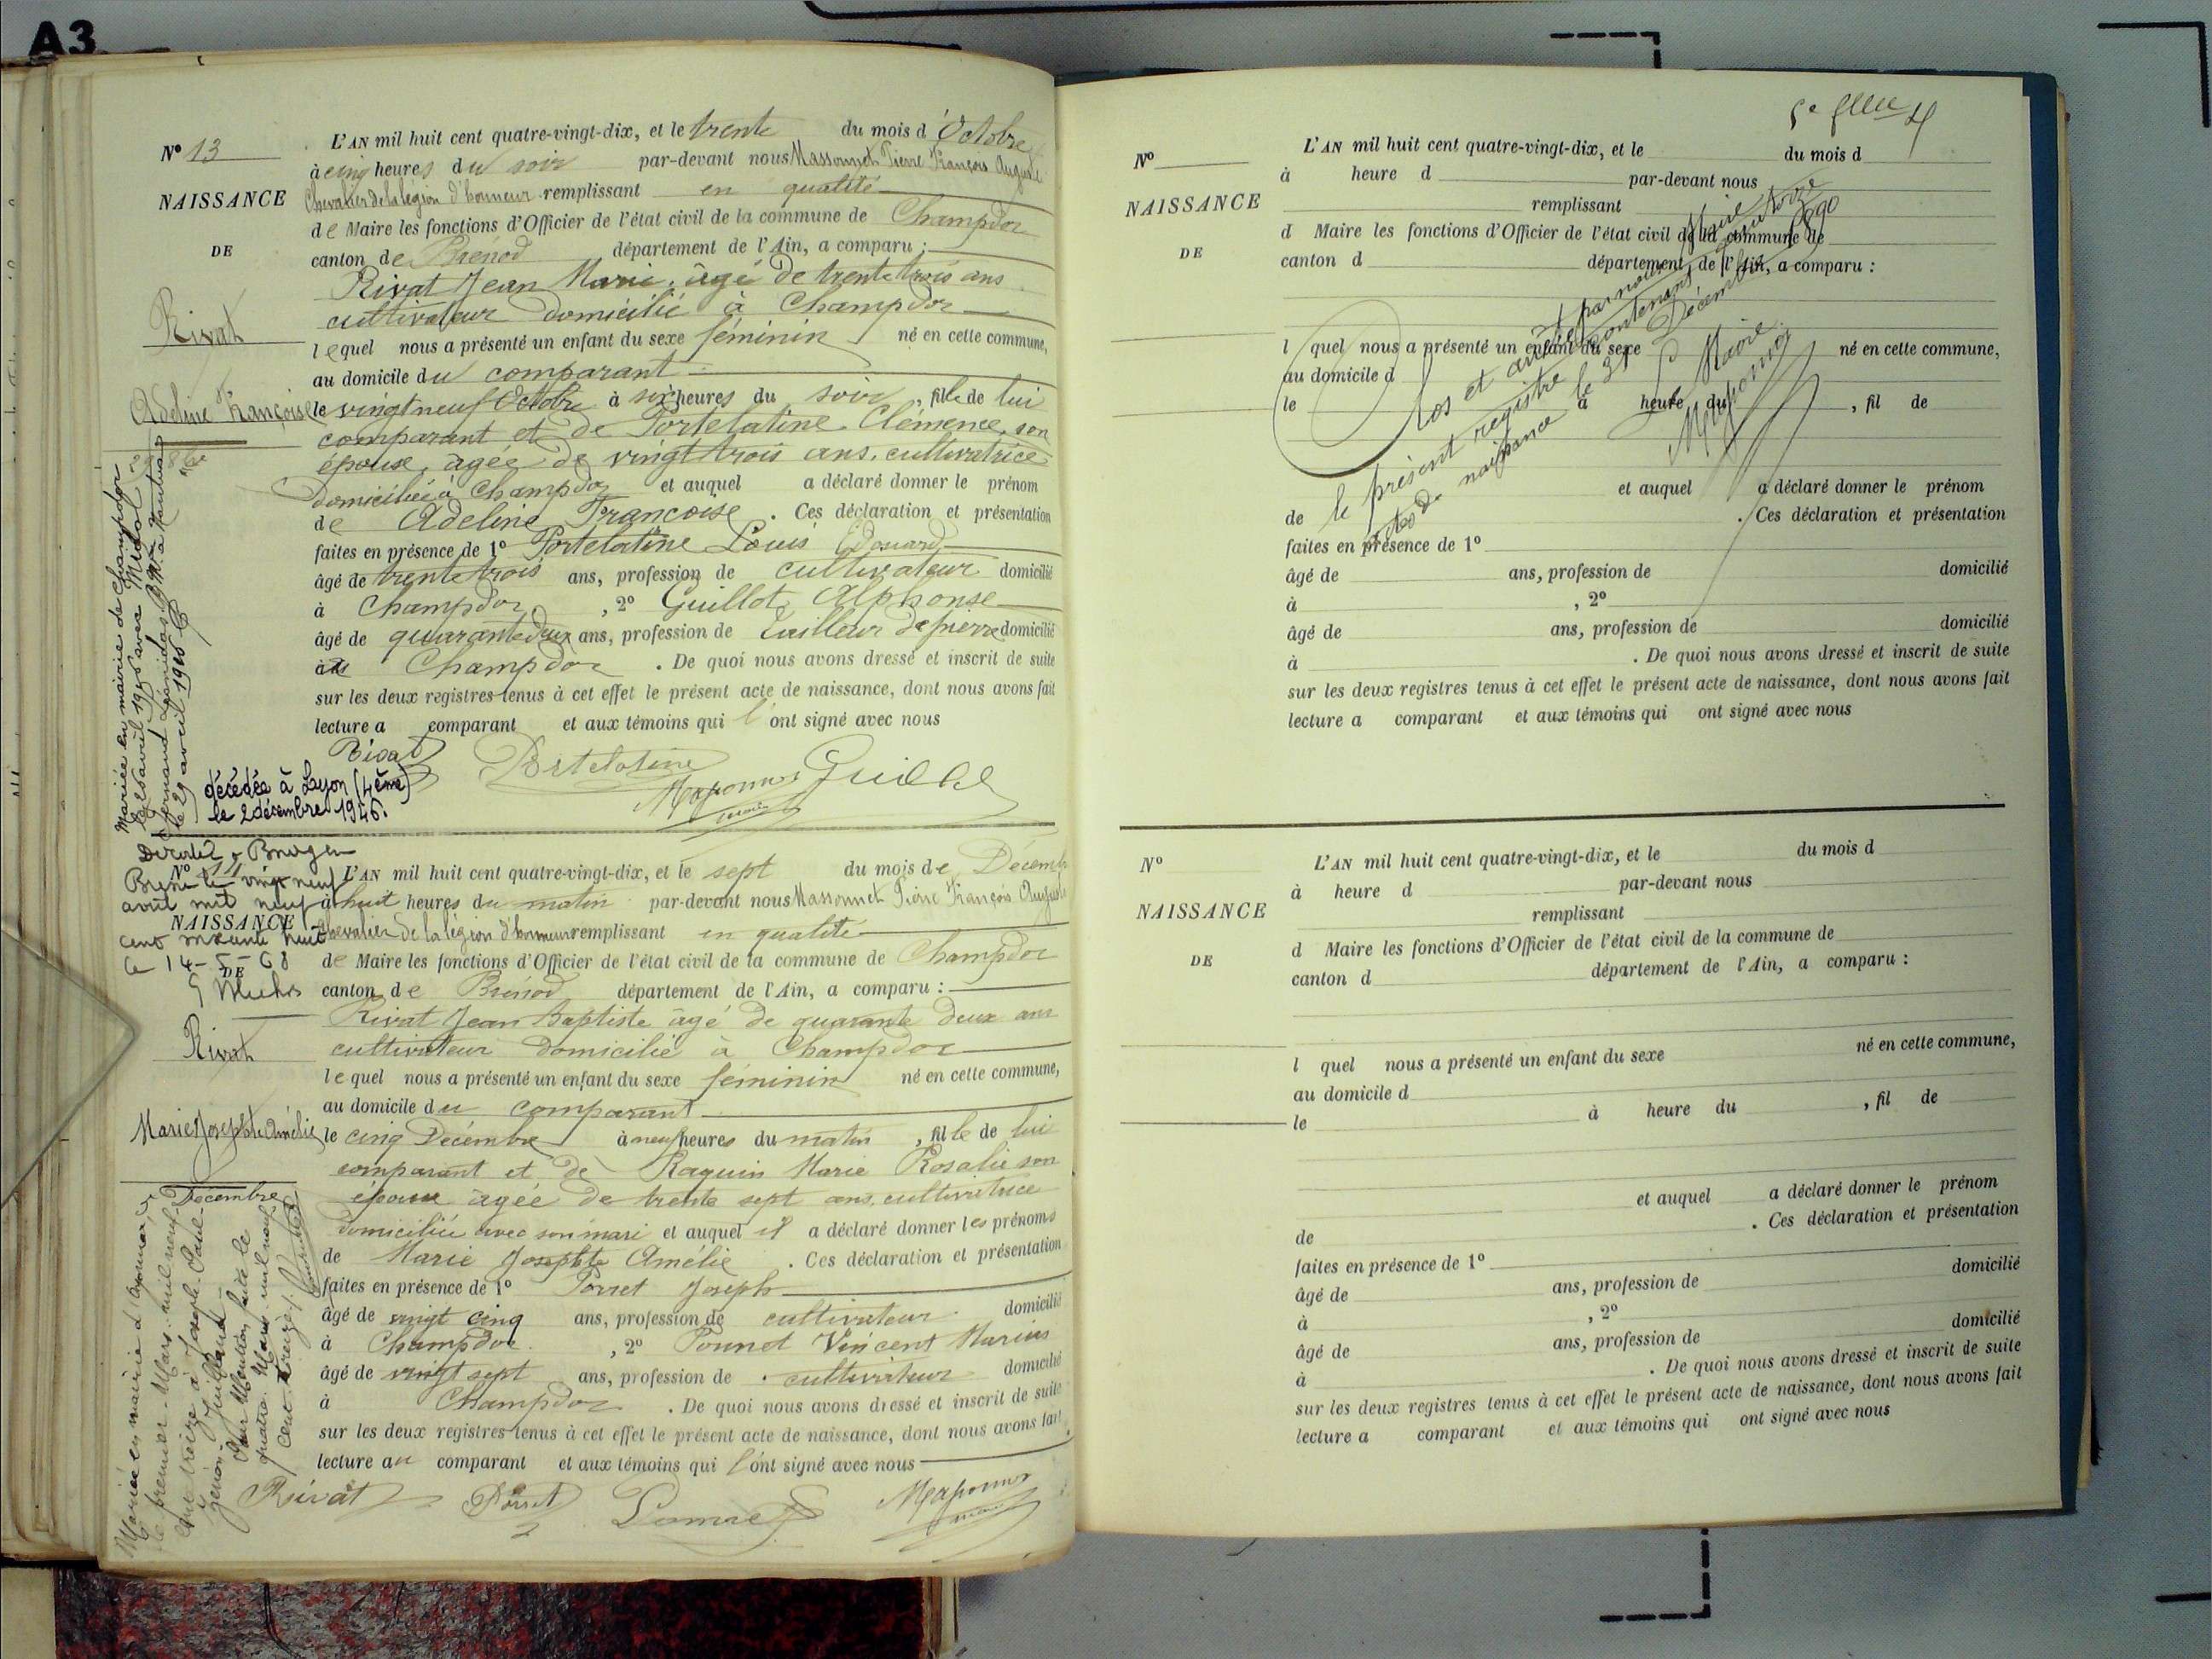 A3
N° 13
NAISSANCE
DE
Rivat
Adeline Françoise
L'AN mil huit cent quatre-vingt-dix, et le trente du mois d'Octobre
à cinq heures du soir par-devant nous Massonnet Pierre François Auguste
Chevalier de la légion d'honneur remplissant en qualité
de Maire les fonctions d'Officier de l'état civil de la commune de Champdor
canton de Brénod département de l'Ain, a comparu :
Rivat Jean Marie, âgé de trente trois ans
cultivateur domicilié à Champdor
lequel nous a présenté un enfant du sexe féminin né en cette commune,
au domicile du comparant
le vingt neuf Octobre à six heures du soir, fille de lui
comparant et de Portelatine Clémence, son
épouse, agée de vingt trois ans, cultivatrice
domiciliée à Champdor et auquel a déclaré donner le prénom
de Adeline Françoise. Ces déclaration et présentation
faites en présence de 1° Portelatine Louis Edouard
âgé de trente trois ans, profession de cultivateur domicilié
à Champdor, 2° Guillot Alphonse
âgé de quarante deux ans, profession de tailleur de pierre domicilié
à Champdor. De quoi nous avons dressé et inscrit de suite
sur les deux registres tenus à cet effet le présent acte de naissance, dont nous avons fait
lecture a comparant et aux témoins qui l'ont signé avec nous
Rivat Portelatine Guillot
Mariée en mairie de Champdor
le 29 avril 1946
décédée à Lyon (4ème)
le 2 décembre 1946.
N° 14
NAISSANCE
DE
Rivat
Marie Josephte Amélie
L'AN mil huit cent quatre-vingt-dix, et le sept du mois de Décembre
à huit heures du matin par-devant nous Massonnet Pierre François Auguste
Chevalier de la légion d'honneur remplissant en qualité
de Maire les fonctions d'Officier de l'état civil de la commune de Champdor
canton de Brénod département de l'Ain, a comparu :
Rivat Jean Baptiste âgé de quarante deux ans
cultivateur domicilié à Champdor
lequel nous a présenté un enfant du sexe féminin né en cette commune,
au domicile du comparant
le cinq Décembre à neuf heures du matin, fille de lui
comparant et de Raquin Marie Rosalie son
épouse agée de trente sept ans, cultivatrice
domiciliée avec son mari et auquel il a déclaré donner les prénoms
de Marie Josephte Amélie. Ces déclaration et présentation
faites en présence de 1° Porret Joseph
âgé de vingt cinq ans, profession de cultivateur domicilié
à Champdor, 2° Vincent Marius
âgé de vingt sept ans, profession de cultivateur domicilié
à Champdor. De quoi nous avons dressé et inscrit de suite
sur les deux registres tenus à cet effet le présent acte de naissance, dont nous avons fait
lecture au comparant et aux témoins qui l'ont signé avec nous
Rivat Porret
N°
NAISSANCE
DE
L'AN mil huit cent quatre-vingt-dix, et le du mois d
à heure d par-devant nous
remplissant
d Maire les fonctions d'Officier de l'état civil de la commune de
canton d département de l'Ain, a comparu :
l quel nous a présenté un enfant du sexe né en cette commune,
au domicile d
le à heure du , fil de
et auquel a déclaré donner le prénom
de . Ces déclaration et présentation
faites en présence de 1°
âgé de ans, profession de domicilié
à , 2°
âgé de ans, profession de domicilié
à . De quoi nous avons dressé et inscrit de suite
sur les deux registres tenus à cet effet le présent acte de naissance, dont nous avons fait
lecture a comparant et aux témoins qui ont signé avec nous
Clos et arrêté par nous Maire
le présent registre contenant quatorze
actes de naissance le 31 Décembre 1890
Maire
N°
NAISSANCE
DE
L'AN mil huit cent quatre-vingt-dix, et le du mois d
à heure d par-devant nous
remplissant
d Maire les fonctions d'Officier de l'état civil de la commune de
canton d département de l'Ain, a comparu :
l quel nous a présenté un enfant du sexe né en cette commune,
au domicile d
le à heure du , fil de
et auquel a déclaré donner le prénom
de . Ces déclaration et présentation
faites en présence de 1°
âgé de ans, profession de domicilié
à , 2°
âgé de ans, profession de domicilié
à . De quoi nous avons dressé et inscrit de suite
sur les deux registres tenus à cet effet le présent acte de naissance, dont nous avons fait
lecture a comparant et aux témoins qui ont signé avec nous